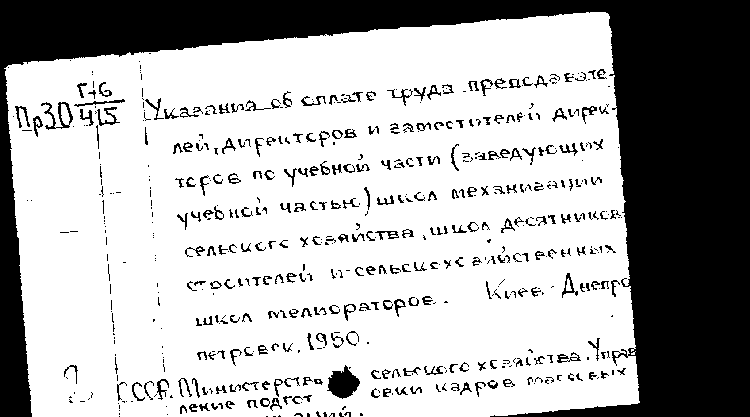 Пр30 Г-6
4/15
Указания об оплате труда преподавате-
лей, директоров и заместителей дирек-
торов по учебной части (заведующих
учебной частью) школ механизации
сельского хозяйства, школ десятников-
строителей и сельскохозяйственных
школ мелиораторов. Киев-Днепро
петровск, 1950.
2 СССР. Министерство сельского хозяйства. Управ
ление подгот овки кадров массовых